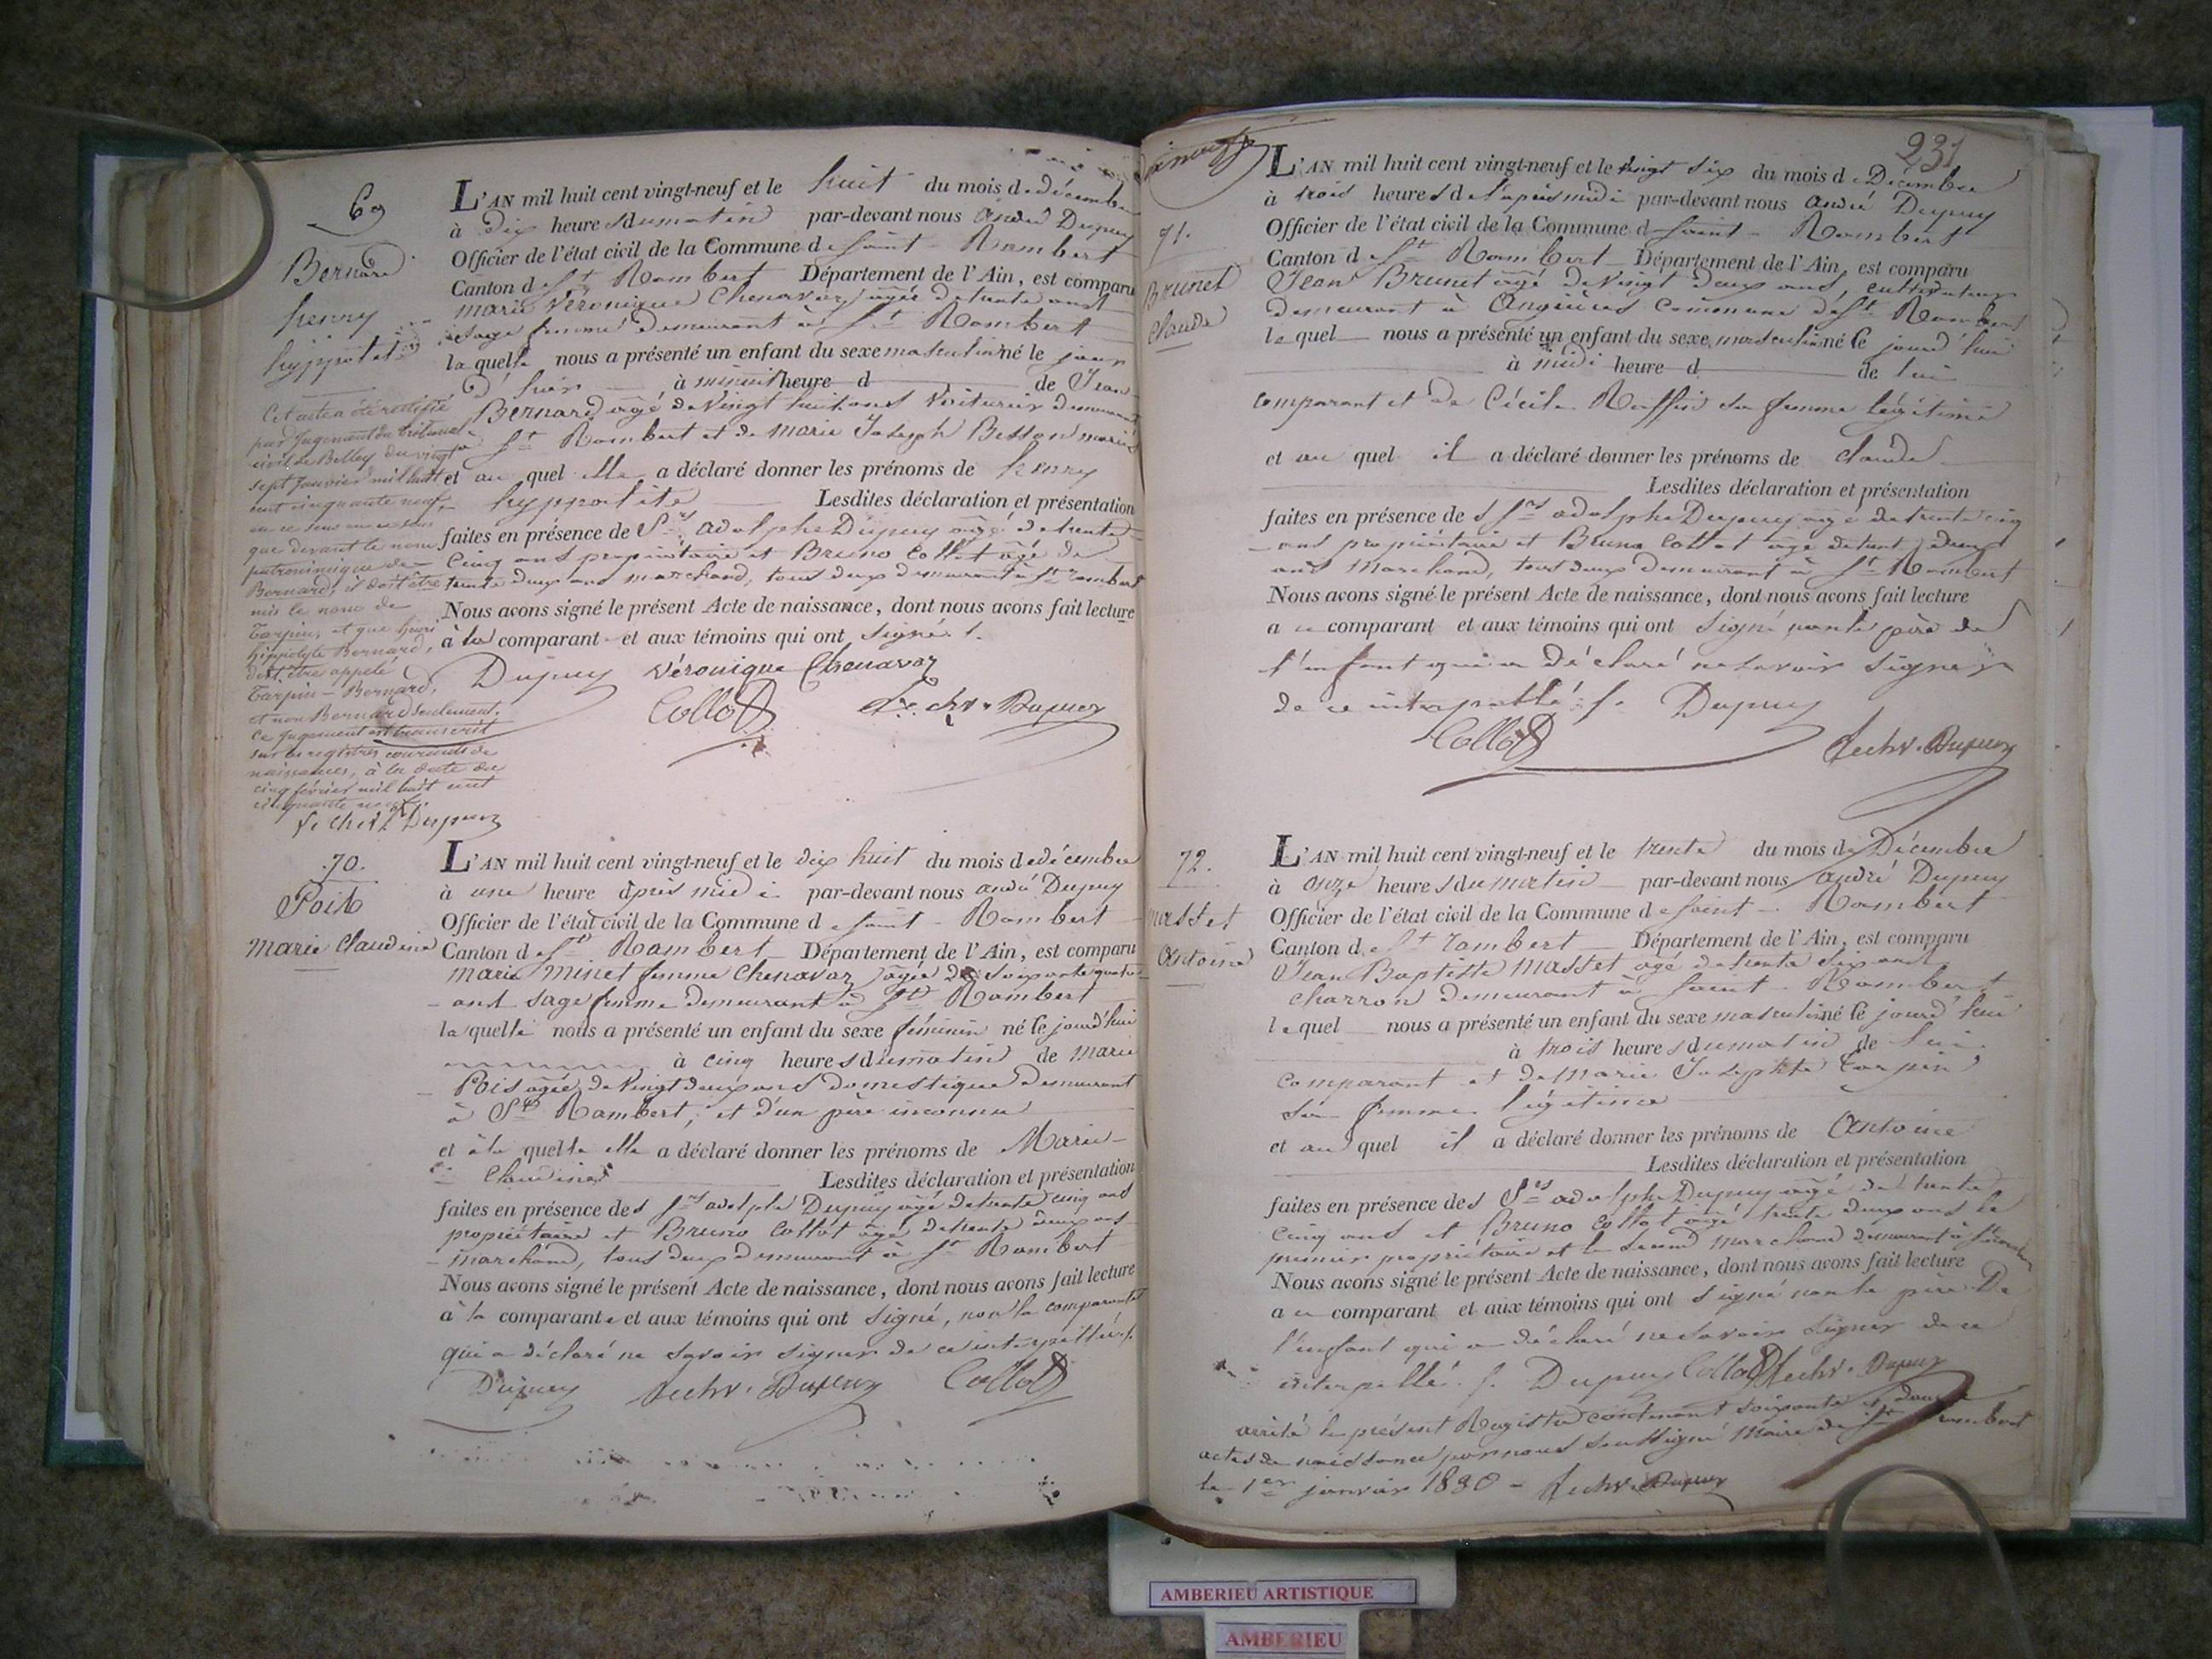 69
Bernard
henry
hyppolite
Cet acte a été rectifié
par jugement du tribunal
civil de Belley du vingt
sept janvier mil huit
cent cinquante neuf,
en ce sens
que devant le nom
patronimique de
Bernard, il doit être
mis le nom de
Tarpin, et que henri
hippolyte Bernard,
doit être appelé
Tarpin-Bernard,
et non Bernard seulement.
Ce jugement est transcrit
sur les registres courants de
naissances, à la date du
cinq février mil huit cent
cinquante neuf
Dupuy
L'AN mil huit cent vingt-neuf et le huit du mois de décembre
à dix heures du matin par-devant nous André Dupuy
Officier de l'état civil de la Commune de Saint-Rambert
Canton de St Rambert Département de l'Ain, est comparu
marie Véronique Chenavaz, agée de trente ans
sage femme demeurant à St Rambert
laquelle nous a présenté un enfant du sexe masculin né le jour
d'hier à minuit heure d de Jean
Bernard agé de vingt huit ans Voiturier demeurant
à St Rambert et de marie Joseph Besson mariés
et au quel elle a déclaré donner les prénoms de henry
hyppolite Lesdites déclaration et présentation
faites en présence de Srs adolphe Dupuy agé de trente
Cinq ans propriétaire et Bruno Collot âgé de
trente deux ans marchand, tous deux demeurant à St rambert
Nous avons signé le présent Acte de naissance, dont nous avons fait lecture
à la comparant et aux témoins qui ont signé.
Dupuy Véronique Chenavaz
Collot Dupuy
70.
Pois
marie Claudine
L'AN mil huit cent vingt-neuf et le dix huit du mois de décembre
à une heure après midi par-devant nous andré Dupuy
Officier de l'état civil de la Commune de Saint-Rambert
Canton de St Rambert Département de l'Ain, est comparu
marie minet femme Chenavaz agée de soixante quatre
ans sage femme demeurant à St Rambert
la quelle nous a présenté un enfant du sexe féminin né le jourd'hui
à cinq heures du matin de marie
Pois agée de vingt deux ans domestique demeurant
à St Rambert, et d'un père inconnu
et à la quelle elle a déclaré donner les prénoms de Marie
Claudine Lesdites déclaration et présentation
faites en présence des Srs adolphe Dupuy agé de trente cinq ans
propriétaire et Bruno Collot agé de trente deux ans
marchand, tous deux demeurant à St Rambert
Nous avons signé le présent Acte de naissance, dont nous avons fait lecture
à la comparante et aux témoins qui ont signé, non la comparante
qui a déclaré ne savoir signer de ce interpellée.
Dupuy Dupuy Collot
231
71.
Brunet
Claude
L'AN mil huit cent vingt-neuf et le vingt six du mois de Décembre
à trois heures de l'après midi par-devant nous André Dupuy
Officier de l'état civil de la Commune de Saint-Rambert
Canton de St Rambert Département de l'Ain, est comparu
Jean Brunet agé de Vingt deux ans, cultivateur
demeurant à Angrières Commune de St Rambert
le quel nous a présenté un enfant du sexe masculin né le jourd'hui
à midi heure d de lui
comparant et de Cécile Ruffin sa femme légitime
et au quel il a déclaré donner les prénoms de Claude
Lesdites déclaration et présentation
faites en présence des Srs adolphe Dupuy agé de trente cinq
ans propriétaire et Bruno Collot agé de trente deux
ans Marchand, tous deux demeurant à St Rambert
Nous avons signé le présent Acte de naissance, dont nous avons fait lecture
a ce comparant et aux témoins qui ont signé non le père de
l'enfant qui a déclaré ne savoir signer
de ce interpellé. Dupuy
Collot Dupuy
72.
Masset
Antoine
L'AN mil huit cent vingt-neuf et le trente du mois de Décembre
à onze heures du matin par-devant nous André Dupuy
Officier de l'état civil de la Commune de Saint-Rambert
Canton de St rambert Département de l'Ain, est comparu
Jean Baptiste Masset agé de trente six ans
charron demeurant à Saint-Rambert
le quel nous a présenté un enfant du sexe masculin né le jourd'hui
à trois heures du matin de lui
comparant et de Marie Josephte Tarpin
sa femme légitime
et au quel il a déclaré donner les prénoms de Antoine
Lesdites déclaration et présentation
faites en présence des Srs adolphe Dupuy agé de trente
cinq ans et Bruno Collot agé trente deux ans le
premier propriétaire et le second marchand demeurant à St rambert
Nous avons signé le présent Acte de naissance, dont nous avons fait lecture
a ce comparant et aux témoins qui ont signé non le père De
l'enfant qui a déclaré ne savoir signer de ce
interpellé. Dupuy Collot Dupuy
arrêté le présent Registre contenant soixante et douze
actes de naissance par nous soussigné Maire de St Rambert
le 1er janvier 1830 - Dupuy
AMBERIEU ARTISTIQUE
AMBERIEU